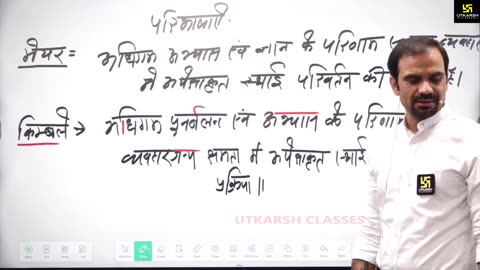 परिभाषाएँ
UTKARSH
मेयर = अधिगम अभ्यास एवं ज्ञान के परिणाम
में अपेक्षाकृत स्थाई परिवर्तन की
किम्बले → अधिगम पुनर्बलन एवं अभ्यास के परिणाम
व्यवहारजन्य क्षमता में अपेक्षाकृत स्थाई
प्रक्रिया॥
UTKARSH CLASSES